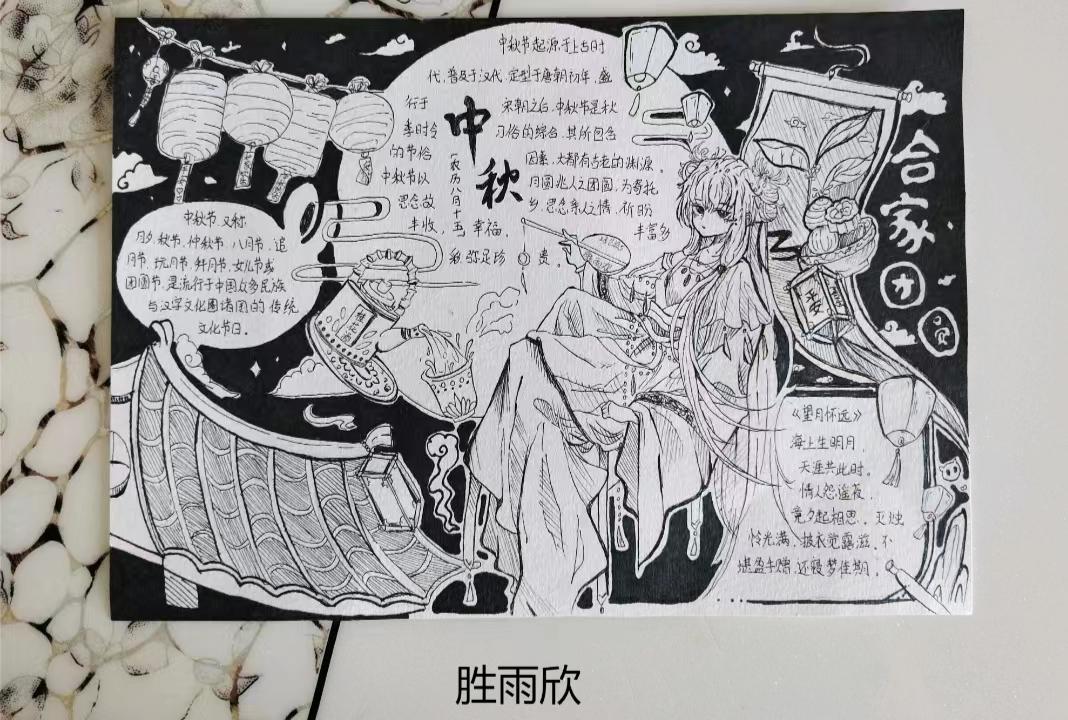 中秋节起源于上古时
代,普及于汉代,定型于唐朝初年,盛
行于 宋朝之后.中秋节是秋
季时令 习俗的综合,其所包含
的节俗 因素,大都有古老的渊源。
中秋节以 月圆兆人之团圆,为寄托
思念故 乡,思念亲人之情,祈盼
丰收,幸福, 丰富多
彩弥足珍贵。
中秋
(农历八月十五
中秋节,又称
月夕,秋节,仲秋节,八月节,追
月节,玩月节,拜月节,女儿节或
团圆节,是流行于中国众多民族
与汉字文化圈诸国的传统
文化节日。
桂花酒
合家团
《望月怀远》
海上生明月,
天涯共此时。
情人怨遥夜,
竟夕起相思。灭烛
怜光满,披衣觉露滋。不
堪盈手赠,还寝梦佳期。
胜雨欣